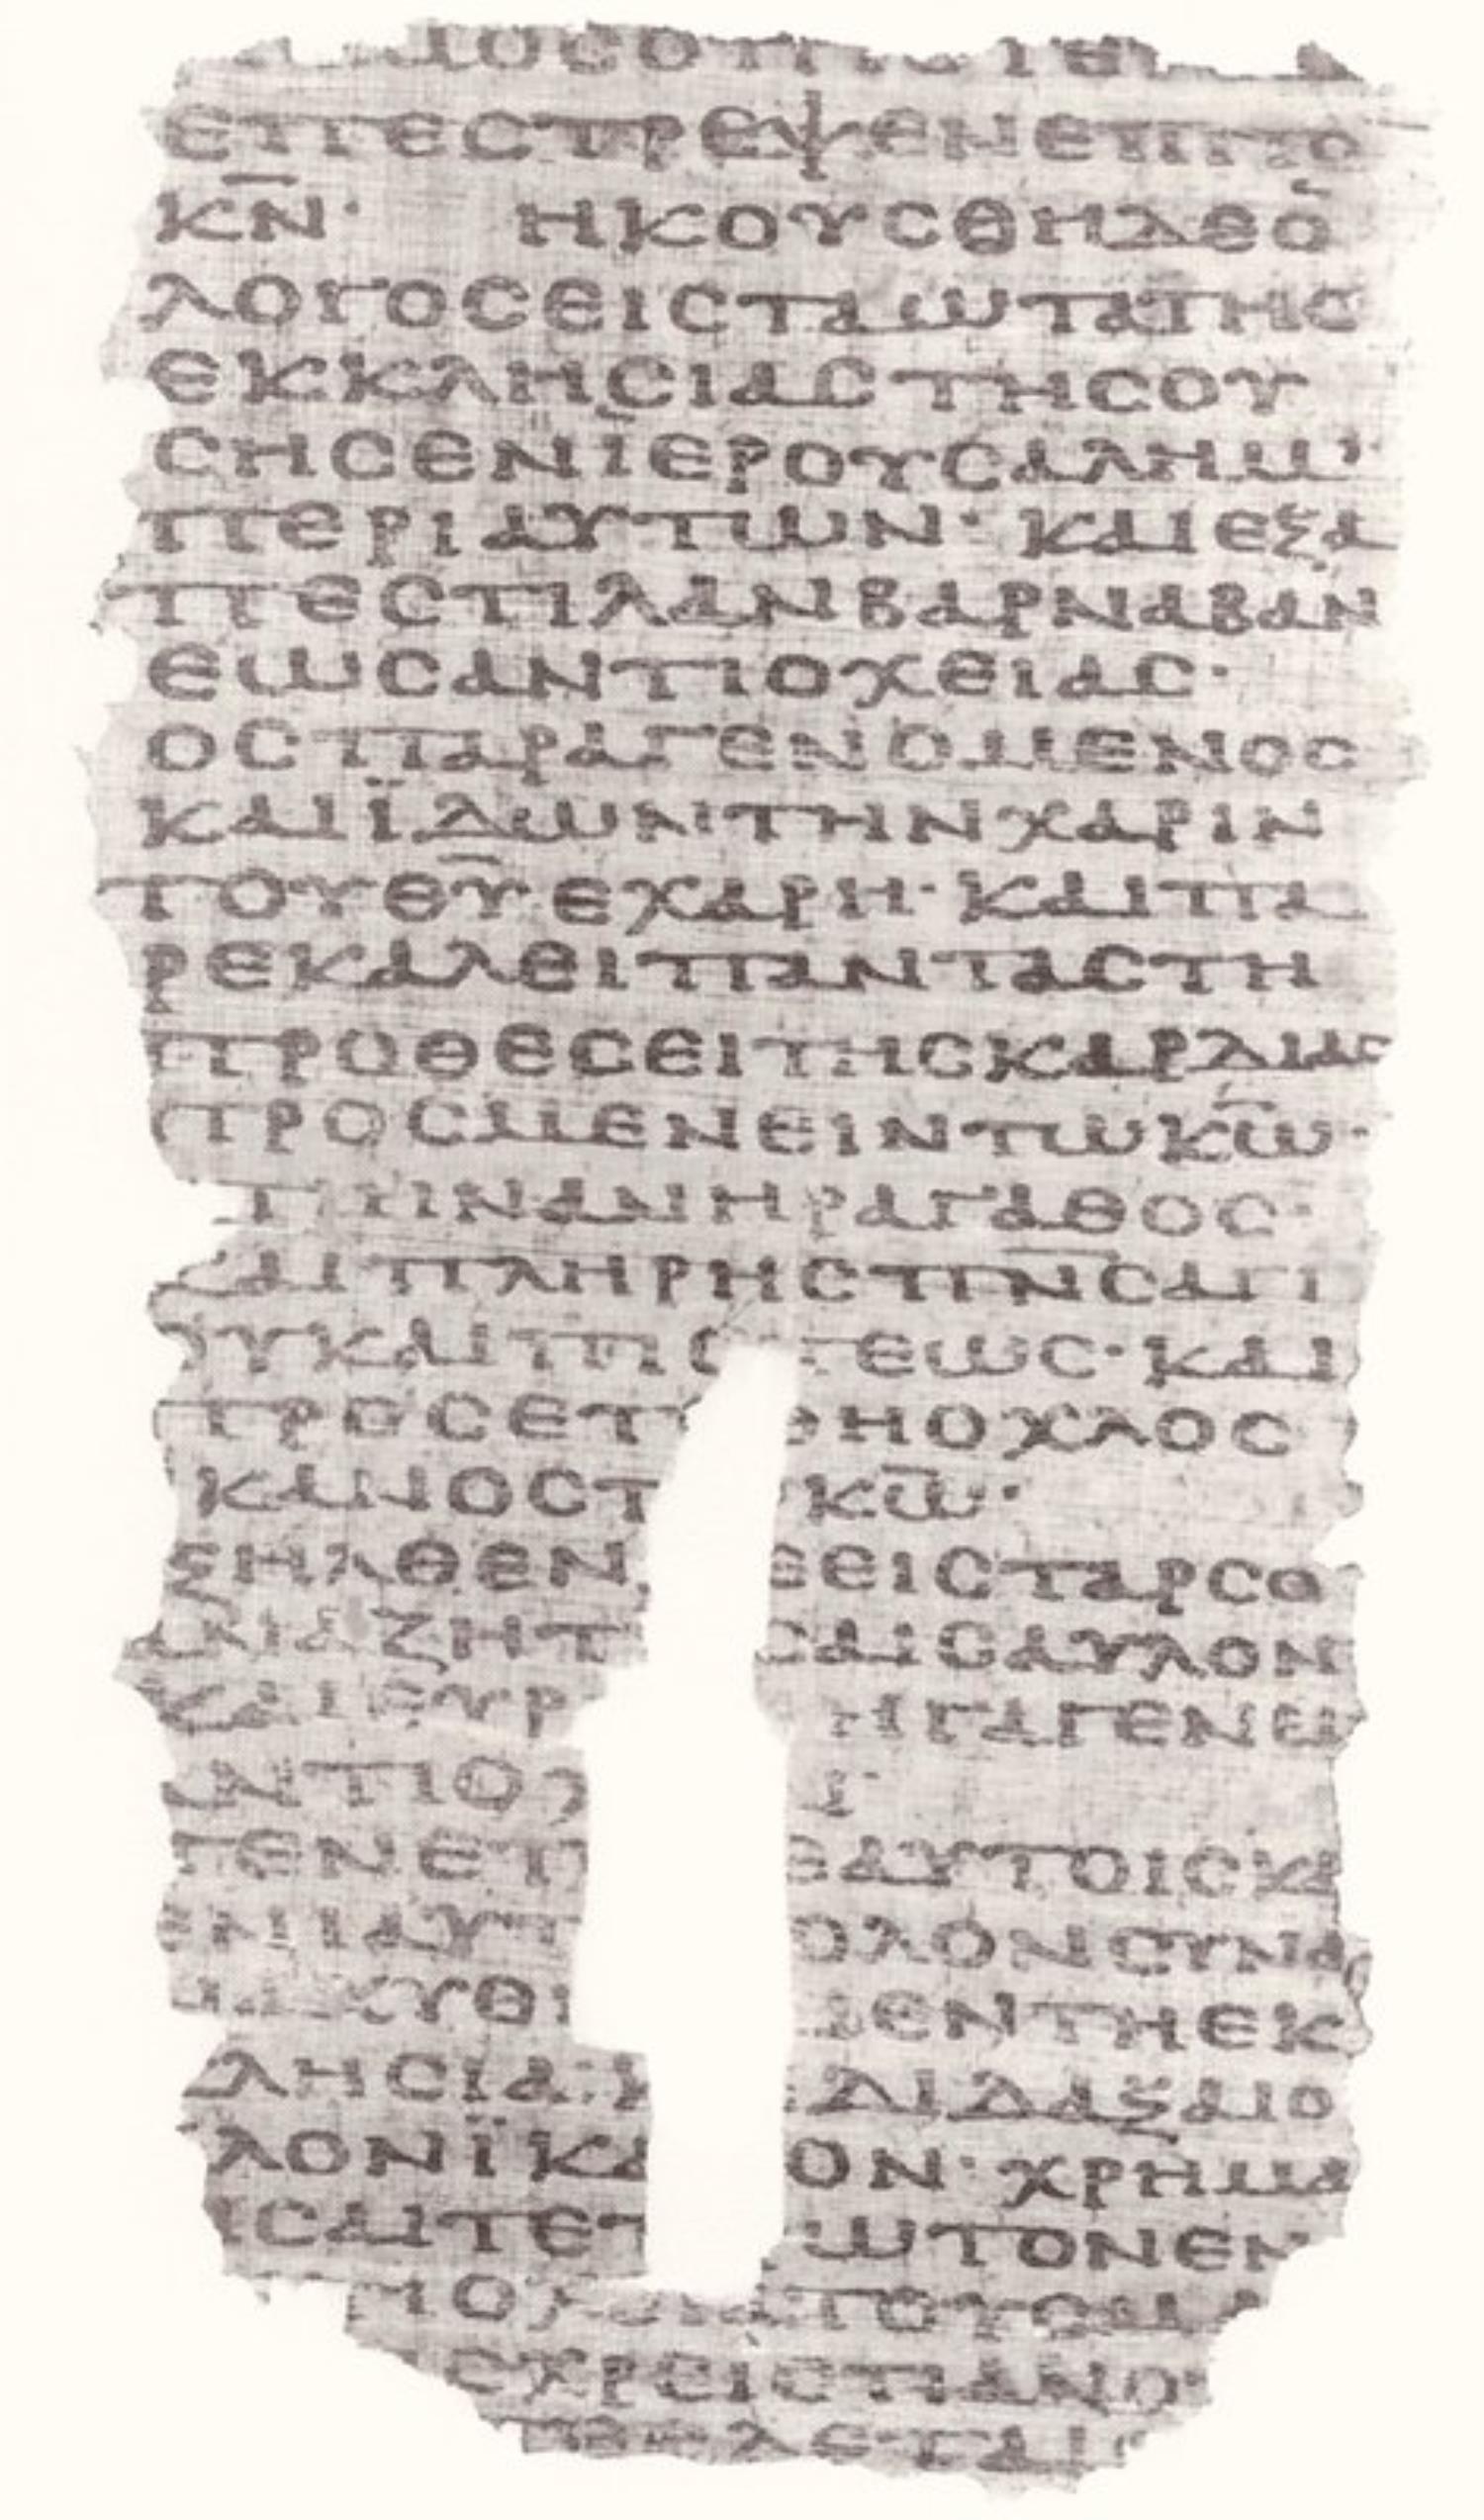 ΕΠΕΣΤΡΕΨΕΝΕΠΙΤΟ
ΚΝ̅· ΗΚΟΥΣΘΗΔΕΟ
ΛΟΓΟΣΕΙΣΤΑΩΤΑΤΗΣ
ΕΚΚΛΗΣΙΑΣΤΗΣΟΥ
ΣΗΣΕΝΙΕΡΟΥΣΑΛΗΜ'
ΠΕΡΙΑΥΤΩΝ· ΚΑΙΕΞΑ
ΠΕΣΤΙΛΑΝΒΑΡΝΑΒΑΝ
ΕΩΣΑΝΤΙΟΧΕΙΑΣ·
ΟΣΠΑΡΑΓΕΝΟΜΕΝΟΣ
ΚΑΙΪΔΩΝΤΗΝΧΑΡΙΝ
ΤΟΥΘΥ̅ΕΧΑΡΗ· ΚΑΙΠΑ
ΡΕΚΑΛΕΙΠΑΝΤΑΣΤΗ
ΠΡΟΘΕΣΕΙΤΗΣΚΑΡΔΙΑΣ
ΠΡΟΣΜΕΝΕΙΝΤΩΚΩ̅·
ΤΙΗΝΑΝΗΡΑΓΑΘΟΣ·
ΚΑΙΠΛΗΡΗΣΠΝ̅ΣΑΓΙ
ΟΥΚΑΙΠΙΣΤΕΩΣ· ΚΑΙ
ΠΡΟΣΕΤ ΘΗΟΧΛΟΣ
ΙΚΑΝΟΣΤ ΚΩ̅·
ΞΗΛΘΕΝ ΕΕΙΣΤΑΡΣΟ
ΑΝΑΖΗΤ ΣΑΙΣΑΥΛΟΝ
ΚΑΙΕΥΡ ΗΓΑΓΕΝΕΙΣ
ΑΝΤΙΟΧ
ΓΕΝΕΤ ΕΑΥΤΟΙΣΚΑ
ΕΝΙΑΥΤ ΟΛΟΝΣΥΝΑ
ΧΥΘΗ ΕΝΤΗΕΚ
ΚΛΗΣΙΑ·Κ ΔΙΔΑΞΑΙΟ
ΧΛΟΝΪΚΑ ΟΝ· ΧΡΗΜΑ
ΤΙΣΑΙΤΕΤ ΩΤΟΝΕΝ
ΤΙΟΧ ΤΟΥΣΜΑ
ΣΧΡΕΙΣΤΙΑΝΟΥ